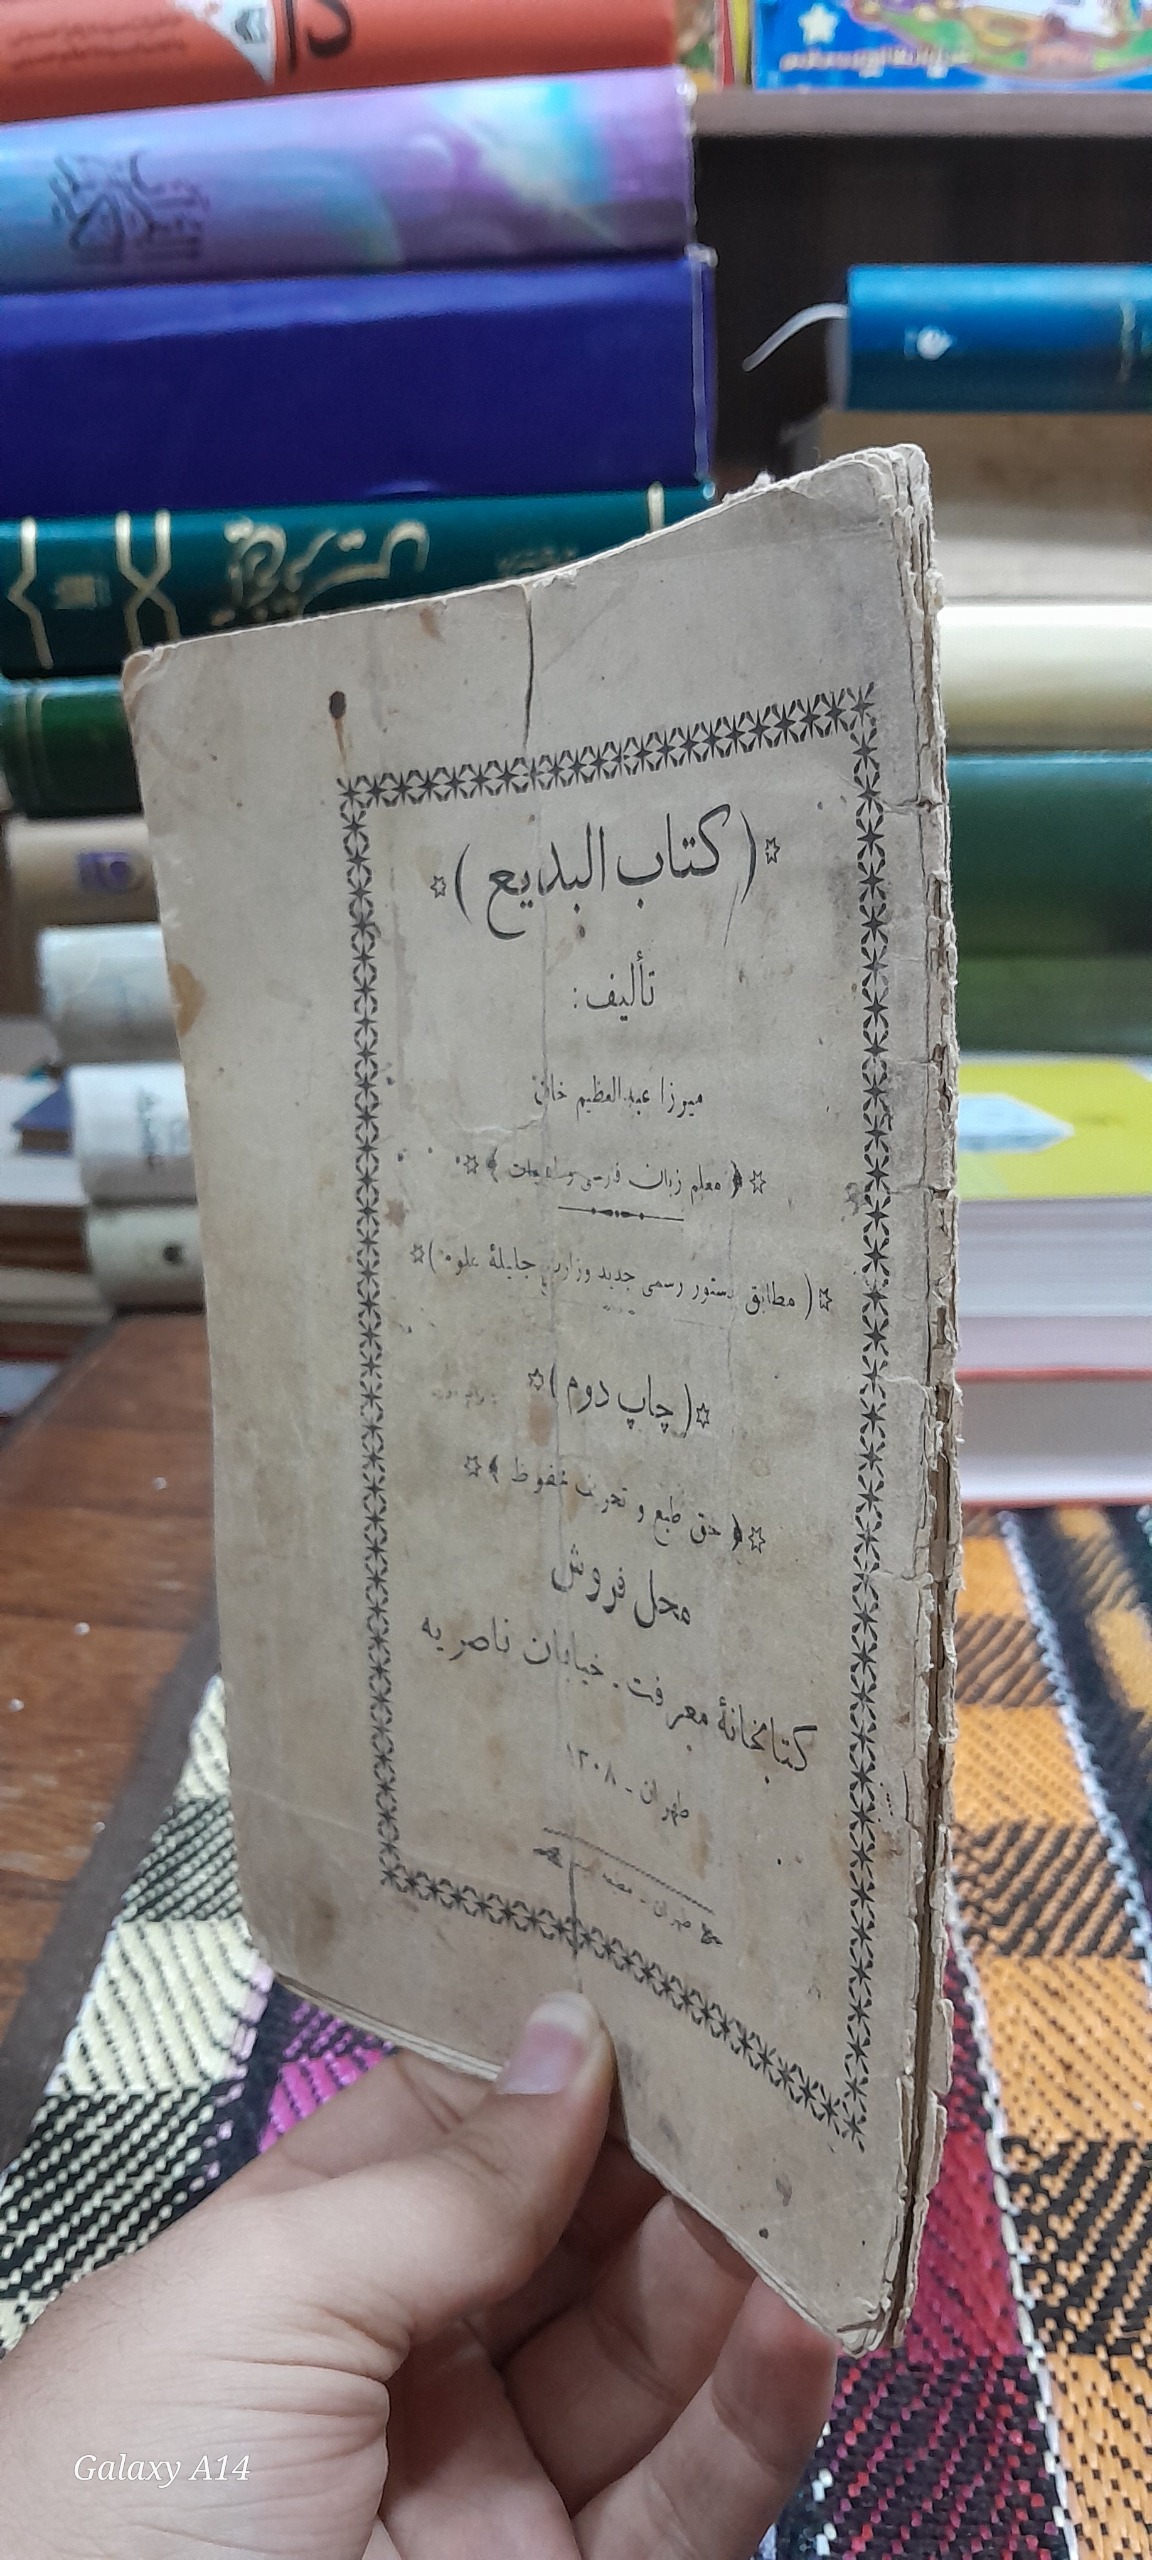 القرآن الكريم
(کتاب البدیع)
تألیف:
میرزا عبدالعظیم خان
﴿ معلم زبان فارسی و ادبیات ﴾
( مطابق دستور رسمی جدید وزارت جلیلهٔ علوم )
( چاپ دوم )
﴿ حق طبع و تحریف محفوظ ﴾
محل فروش
کتابخانهٔ معرفت . خیابان ناصریه
طهران - ۱۳۰۸
طهران - مطبعه
Galaxy A14